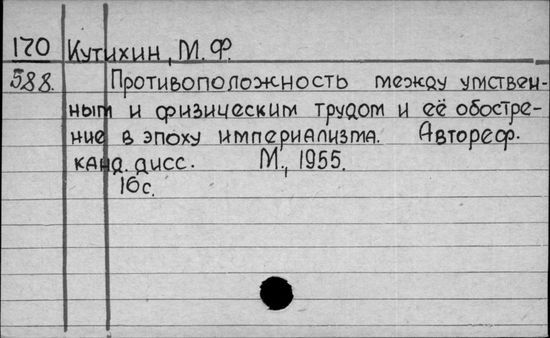 170 Кутихин, М. Ф.
588. Противоположность между умствен-
ным и физическим трудом и её обостре-
ние в эпоху империализма. Автореф.
канд. дисс. М., 1955.
16 с.